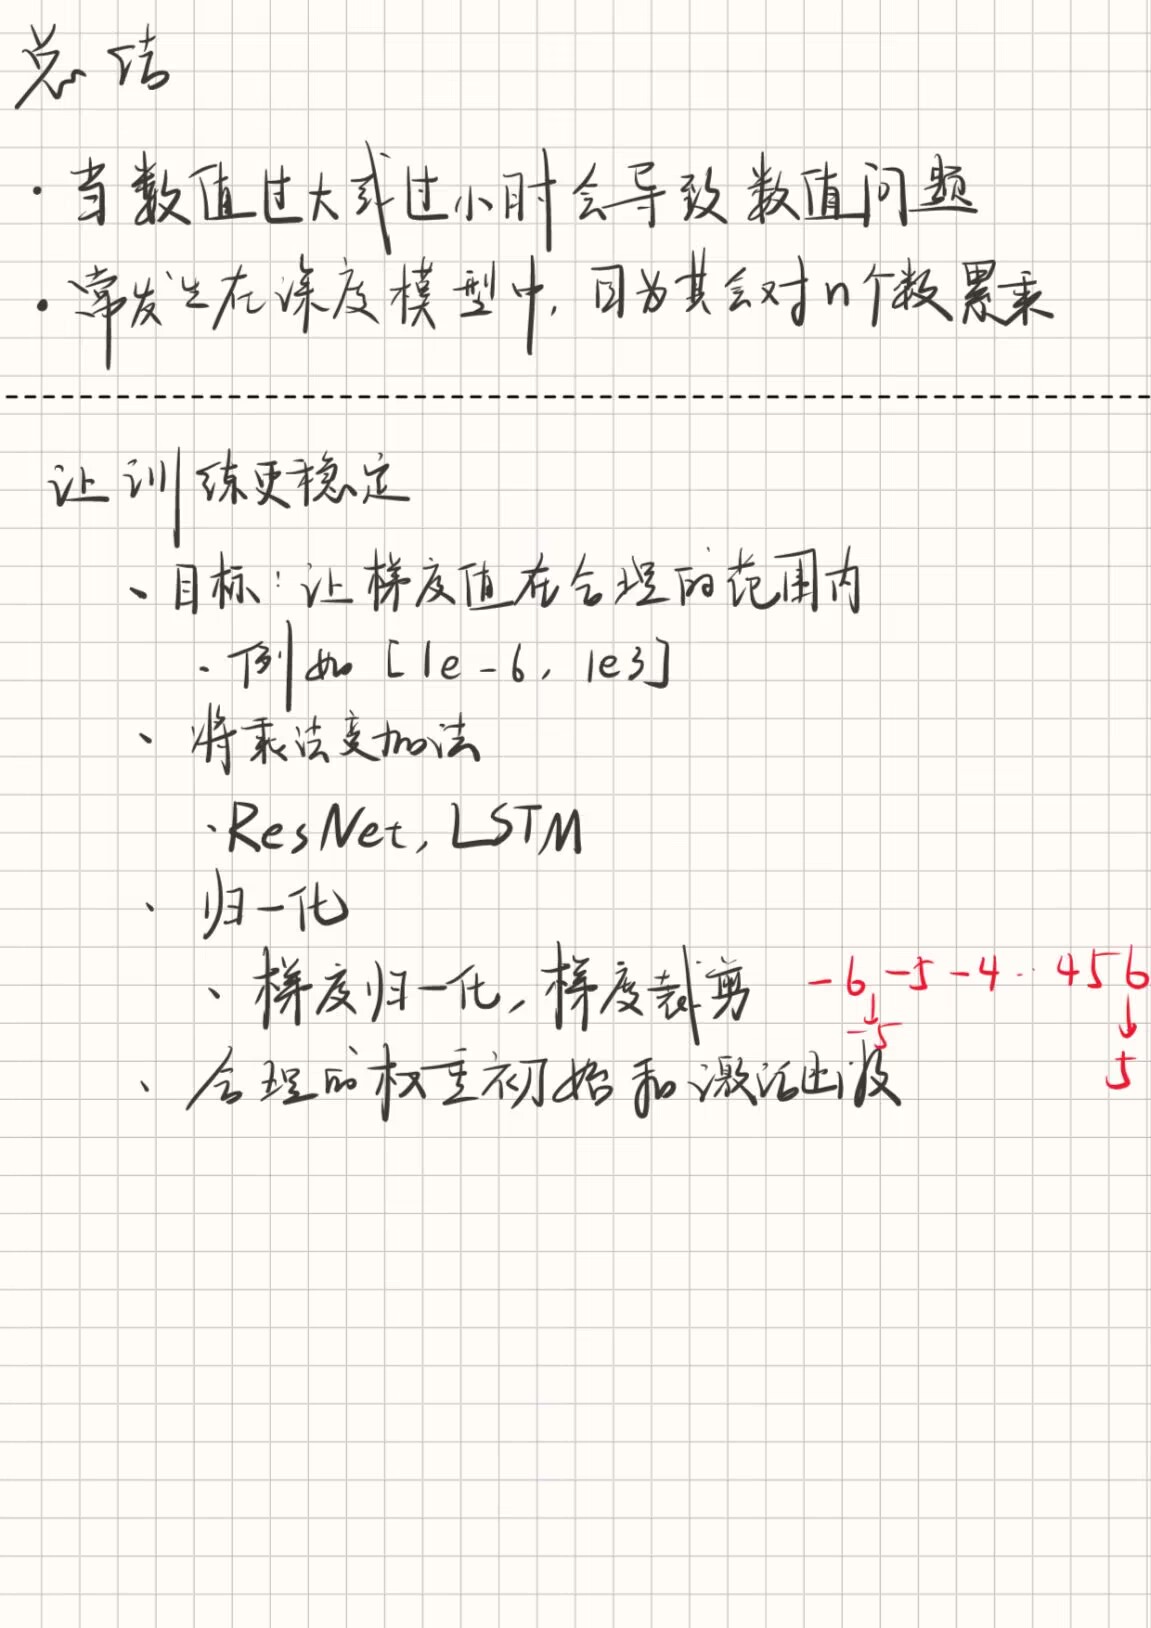 总结
· 当数值过大或过小时会导致数值问题
· 常发生在深度模型中，因为其会对n个数累乘
让训练更稳定
、目标：让梯度值在合理的范围内
· 例如 [1e-6, 1e3]
、将乘法变加法
· ResNet, LSTM
、归一化
、梯度归一化，梯度裁剪 -6 -5 -4 ·· 4 5 6
↓ ↓
-5 5
、合理的权重初始和激活函数